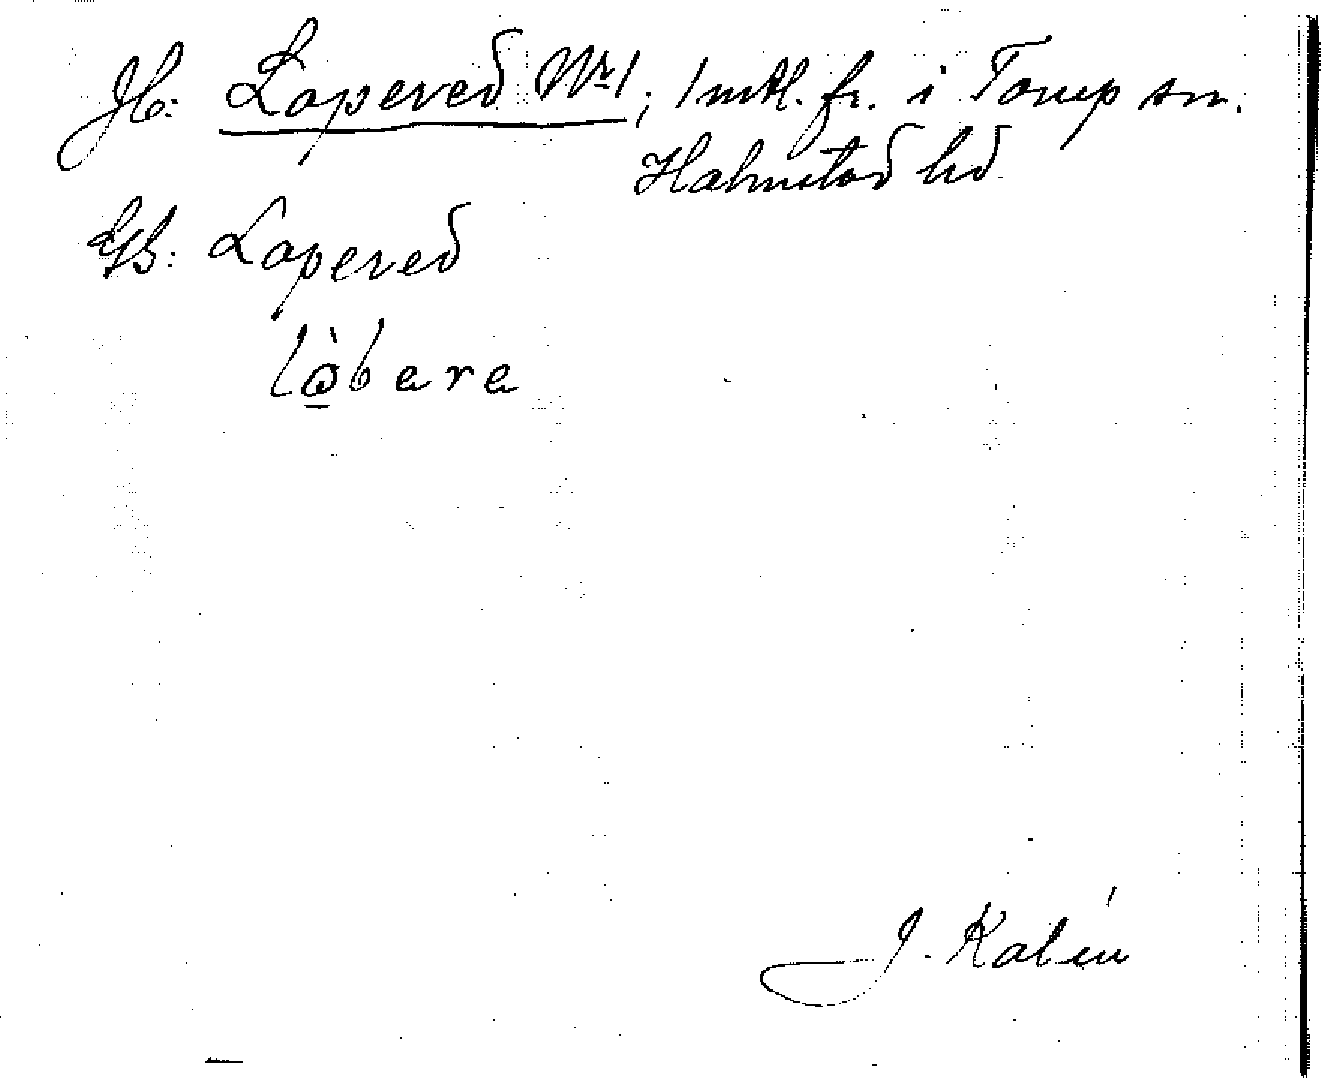 Jb: Lapered Nr 1, 1 mtl. fr. i Torup sn.
Halmstad hd
GB: Lapered
lòbera
J. Kalén